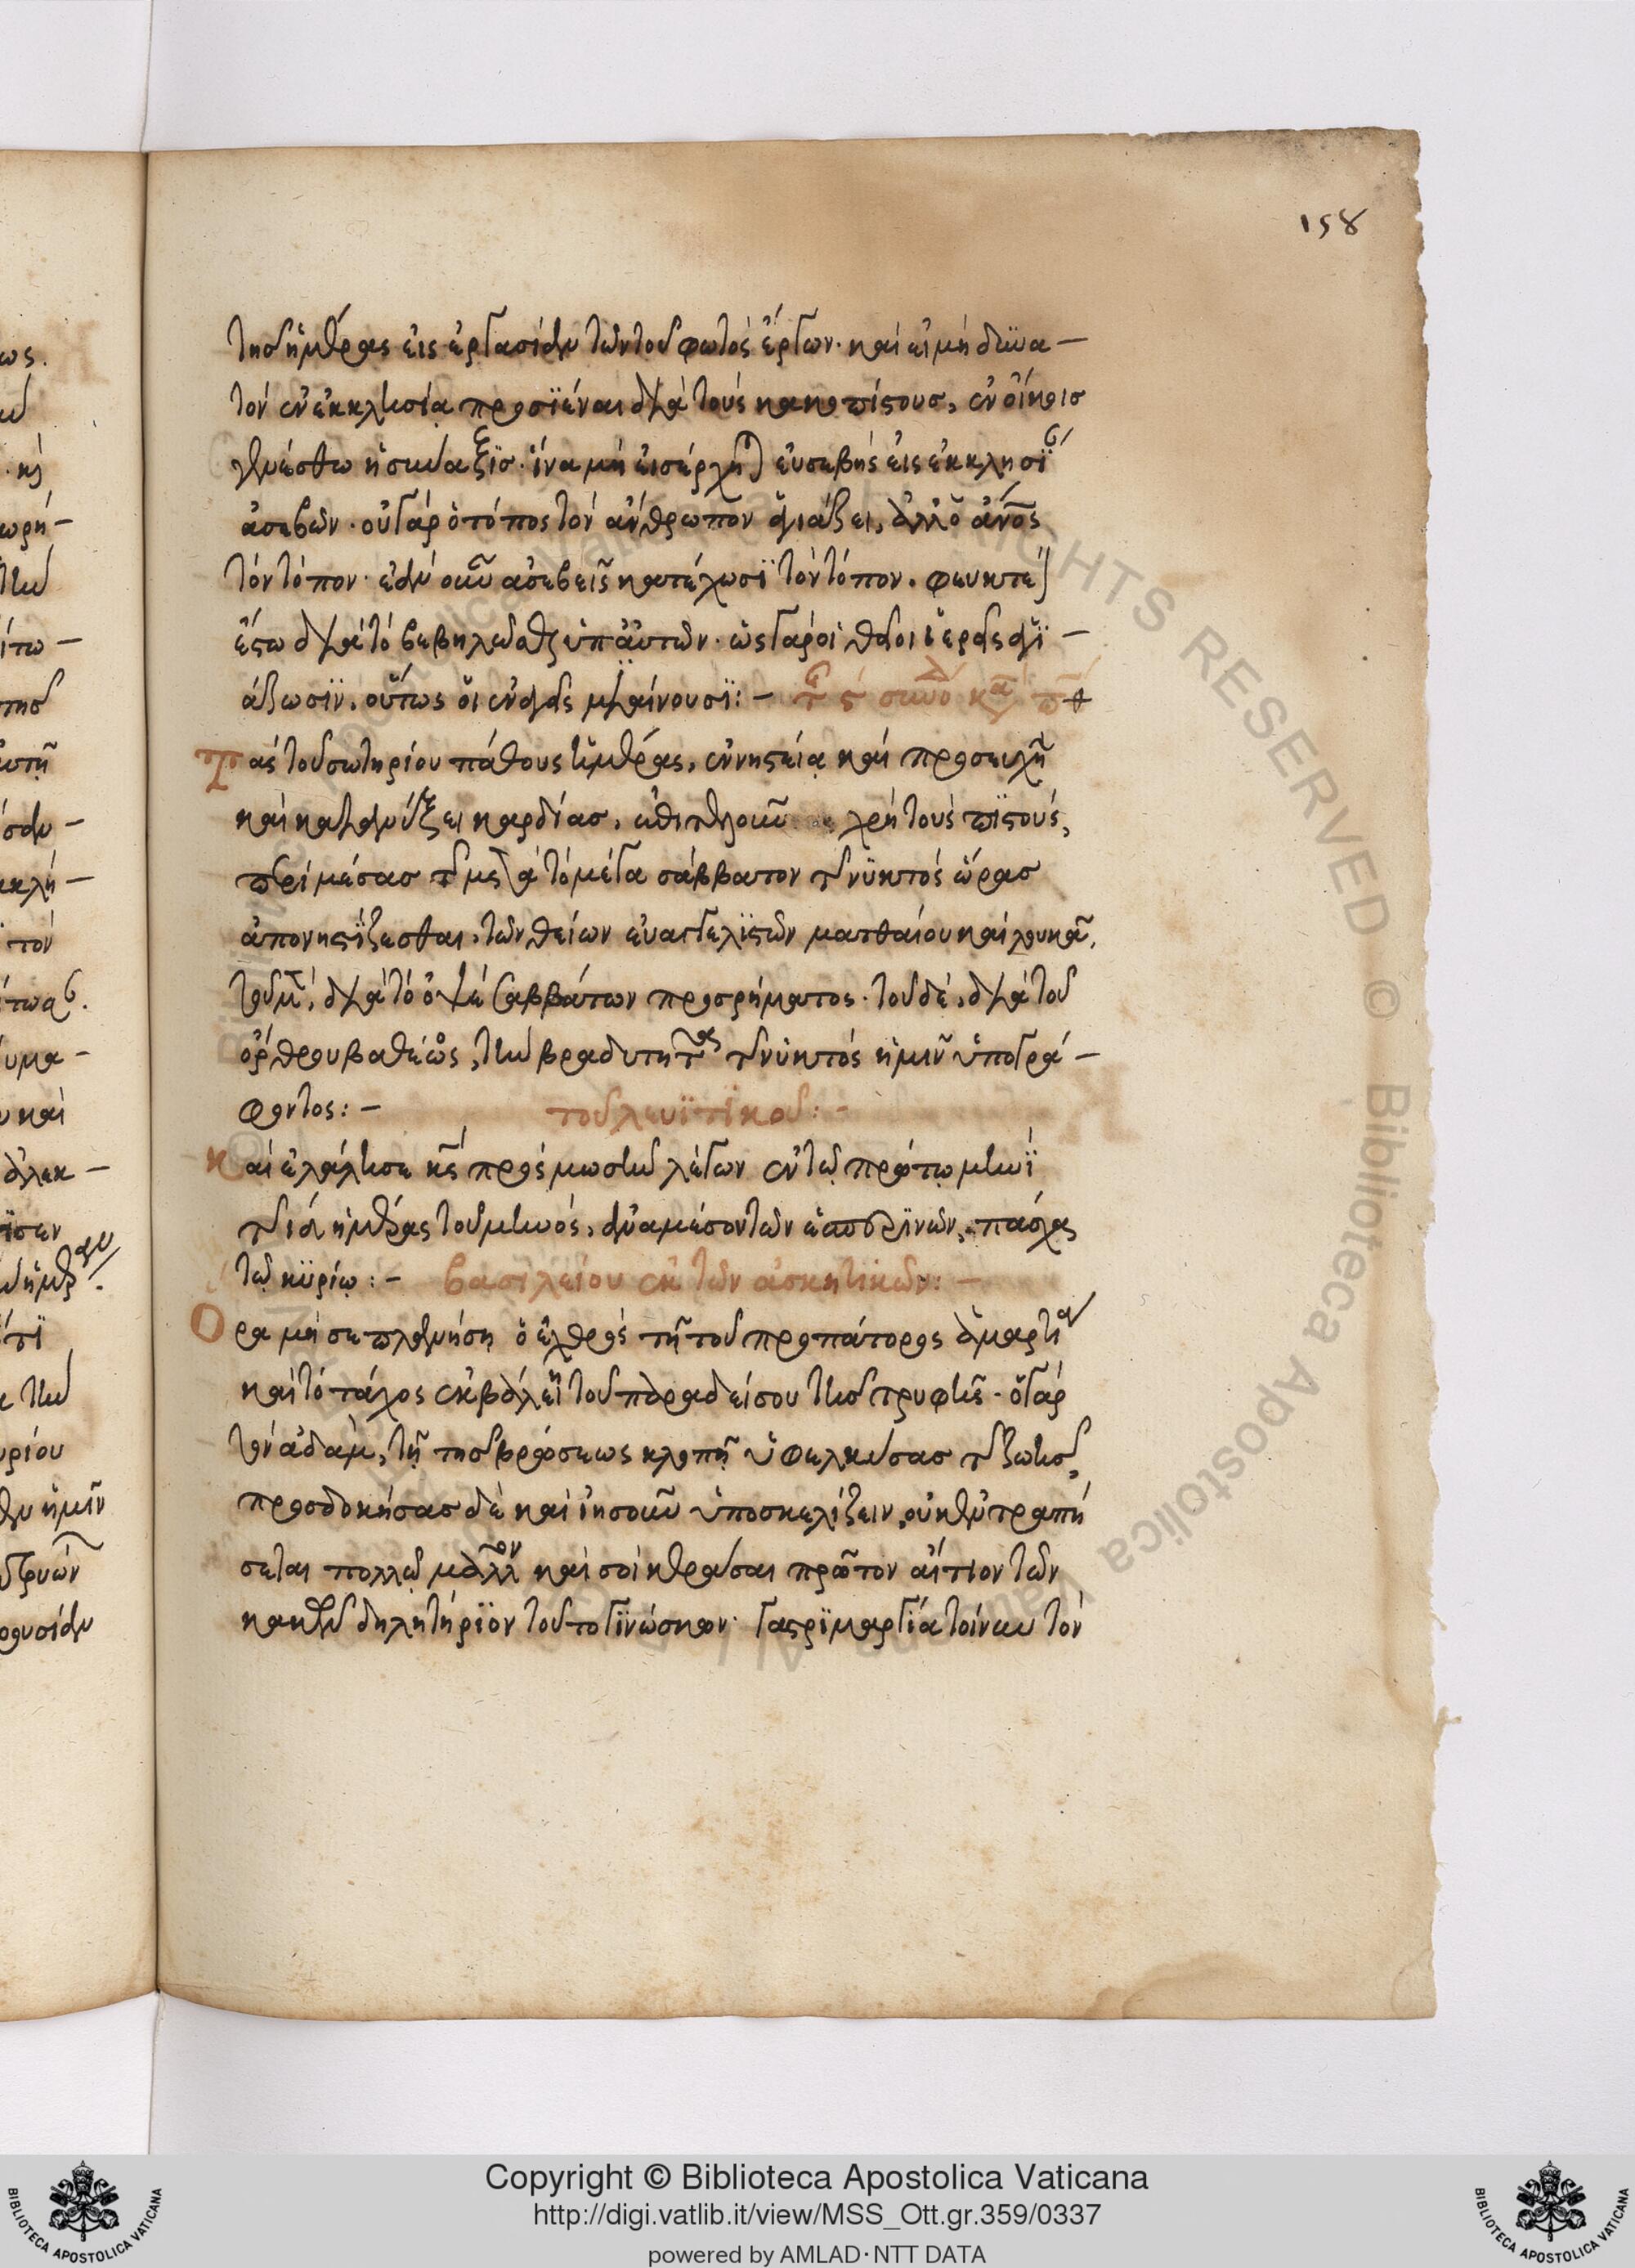 158
τῆς ἡμέρας εἰς ἐργασίαν τῶν τοῦ φωτὸς ἔργων· καὶ εἰ μὴ δϋνα –
τὸν ἐν ἐκκλησίᾳ προσϊέναι διὰ τοὺς κακοπίστους, ἐν οἴκοις
γενέσθω ἡ σύναξϊς· ἵνα μὴ εἰσέρχηται εὐσεβὴς εἰς ἐκκλησΐαν
ἀσεβῶν· οὐ γὰρ ὁ τόπος τὸν ἄνθρωπον ἁγιάζει, ἀλλ' ὁ ἄνος
τὸν τόπον· ἐὰν οὖν ἀσεβεῖς κατέχωσϊ τὸν τόπον. φευκτέον
ἔστω διὰ τὸ βεβηλῶσθαι ὑπ' αὐτῶν· ὡς γὰρ οἱ θεοι ἱερεῖς ἁγϊ –
άζωσϊν, οὕτως οἱ ἐναγεῖς μιαίνουσϊ: –
Τὰς τοῦ σωτηρίου πάθους ἡμέρας, ἐν νηστείᾳ καὶ προσευχῇ
καὶ κατανύξει καρδίας, ἐπιτελοῦν χρὴ τοὺς πϊστοὺς,
περὶ μέσας τῆς μετὰ τὸ μέγα σάββατον τῆς νϋκτὸς ὥρας
ἀπονηστΐζεσθαι, τῶν θείων εὐαγγελϊστῶν ματθαίου καὶ λουκᾶ,
τοῦ μὲν, διὰ τὸ ὀψὲ σαββάτων προσρήματος· τοῦ δὲ, διὰ τοῦ
ὄρθρου βαθέως, τὴν βραδυτῆτα τῆς νϋκτὸς ἡμῖν ὑπογρά –
φοντος: – τοῦ λευϊτϊκοῦ: –
Καὶ ἐλάλησε κς πρὸς μωσῆν λέγων ἐν τῷ πρώτῳ μηνΐ
τῆς ιδ ἡμέρας τοῦ μηνὸς, ἀναμέσον τῶν ἑσπερϊνῶν, πάσχα
τῷ κϋρίῳ: – βασιλείου ἐκ τῶν ἀσκητϊκῶν: –
Ορα μή σε πλανήσῃ ὁ ἐχθρὸς τῇ τοῦ προπάτορος ἁμαρτίᾳ
καὶ τὸ τάχος ἐκβάλῃ τοῦ παραδείσου τῆς τρυφῆς· ὁ γὰρ
τὸν ἀδὰμ, τῇ τῆς βρώσεως κλοπῇ ὑφελκύσας τῆς ζωῆς,
προσδοκήσας δὲ καὶ ἰησοῦν ὑποσκελίζειν, οὐκ ἐντραπή
σεται πολλῷ μᾶλλον καὶ σοὶ κεράσαι πρῶτον αἴτιον τῶν
κακῶν δηλητήρϊον τοῦτο γϊνώσκων· γαστρϊμαργία τοίνυν τὸν
Copyright © Biblioteca Apostolica Vaticana
http://digi.vatlib.it/view/MSS_Ott.gr.359/0337
powered by AMLAD·NTT DATA
BIBLIOTECA APOSTOLICA VATICANA
BIBLIOTECA APOSTOLICA VATICANA